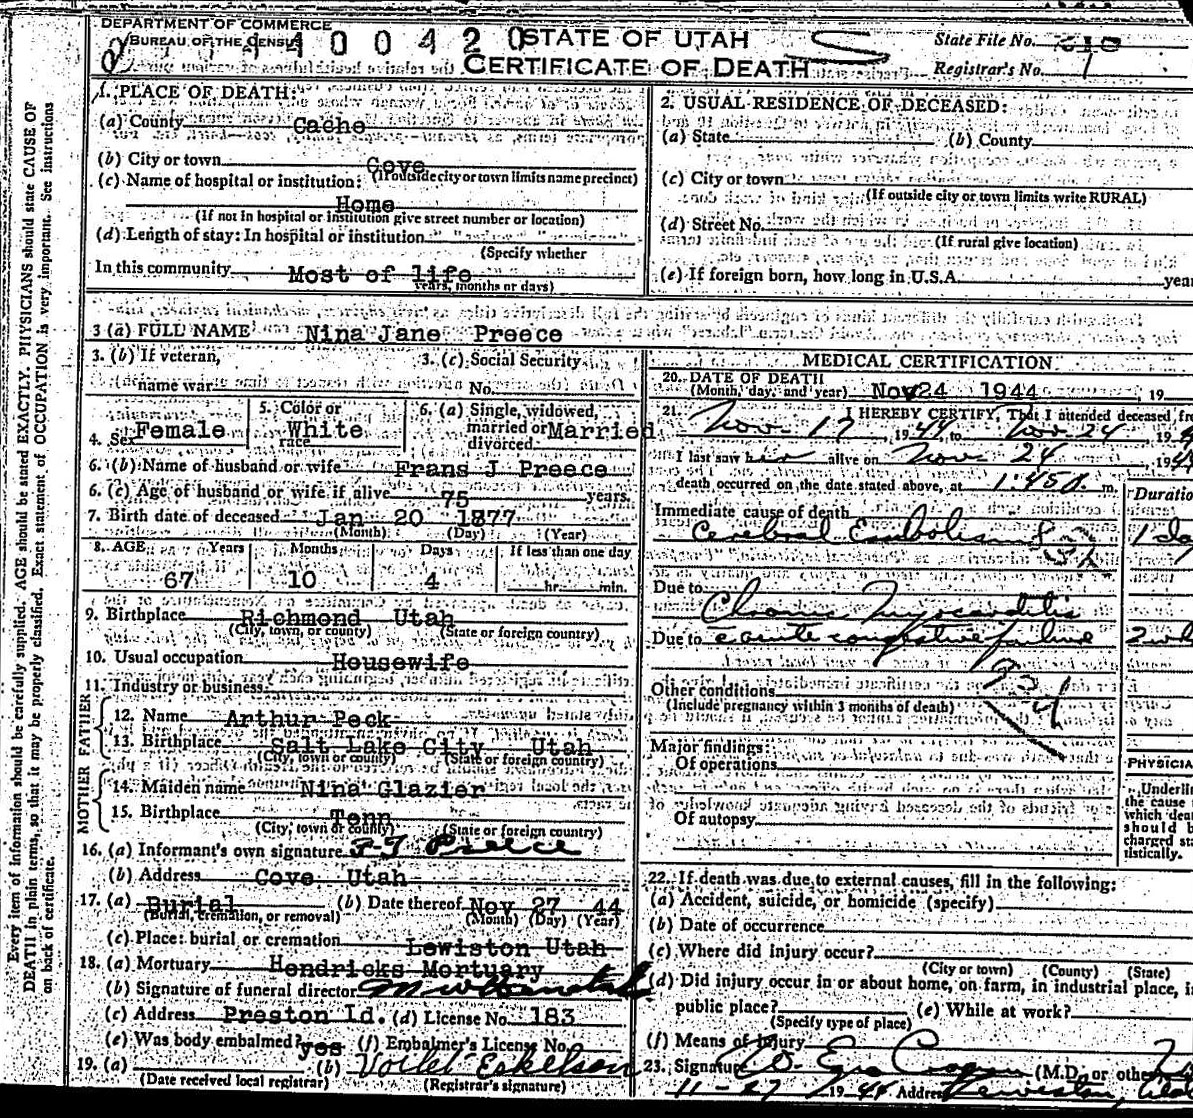 DEPARTMENT OF COMMERCE
BUREAU OF THE CENSUS
400420
STATE OF UTAH
CERTIFICATE OF DEATH
State File No.
Registrar's No. 1
Every item of information should be carefully supplied. AGE should be stated EXACTLY. PHYSICIANS should state CAUSE OF
DEATH in plain terms, so that it may be properly classified. Exact statement of OCCUPATION is very important. See instructions
on back of certificate.
1. PLACE OF DEATH:
(a) County Cache
(b) City or town Cove
(If outside city or town limits name precinct)
(c) Name of hospital or institution:
Home
(If not in hospital or institution give street number or location)
(d) Length of stay: In hospital or institution
(Specify whether
In this community Most of life
years, months or days)
2. USUAL RESIDENCE OF DECEASED:
(a) State (b) County
(c) City or town
(If outside city or town limits write RURAL)
(d) Street No.
(If rural give location)
(e) If foreign born, how long in U.S.A. year
3 (a) FULL NAME Nina Jane Preece
3. (b) If veteran, 3. (c) Social Security
name war No.
4. Sex Female 5. Color or race White 6. (a) Single, widowed, married or divorced Married
6. (b) Name of husband or wife Frans J Preece
6. (c) Age of husband or wife if alive 75 years.
7. Birth date of deceased Jan 20 1877
(Month) (Day) (Year)
8. AGE Years Months Days If less than one day
67 10 4 hr. min.
9. Birthplace Richmond Utah
(City, town, or county) (State or foreign country)
10. Usual occupation Housewife
11. Industry or business
FATHER
12. Name Arthur Peck
13. Birthplace Salt Lake City Utah
(City, town or county) (State or foreign country)
MOTHER
14. Maiden name Nina Glazier
15. Birthplace Tenn
(City, town or county) (State or foreign country)
16. (a) Informant's own signature F J Preece
(b) Address Cove Utah
17. (a) Burial (b) Date thereof Nov 27 44
(Burial, cremation, or removal) (Month) (Day) (Year)
(c) Place: burial or cremation Lewiston Utah
18. (a) Mortuary Hendricks Mortuary
(b) Signature of funeral director
(c) Address Preston Id. (d) License No. 183
(e) Was body embalmed? yes (f) Embalmer's License No.
19. (a) (b) Voilet Eskelson
(Date received local registrar) (Registrar's signature)
MEDICAL CERTIFICATION
20. DATE OF DEATH
(Month, day, and year) Nov 24 1944, 19
21. I HEREBY CERTIFY, That I attended deceased fr
Nov. 17, 1944, to Nov. 24, 19
I last saw her alive on Nov 24, 194
death occurred on the date stated above, at 1:45 m.
Immediate cause of death
Duratio
Cerebral Embolism 1 da
Due to Chronic Myocarditis
Due to acute congestive failure 2 wk
93d
Other conditions
(Include pregnancy within 3 months of death)
Major findings:
Of operations
Of autopsy
PHYSICIA
Underli
the cause
which dea
should b
charged st
tistically.
22. If death was due to external causes, fill in the following:
(a) Accident, suicide, or homicide (specify)
(b) Date of occurrence
(c) Where did injury occur?
(City or town) (County) (State)
(d) Did injury occur in or about home, on farm, in industrial place, i
public place? (e) While at work?
(Specify type of place)
(f) Means of Injury
23. Signature (M.D. or othe
11-27 1944 Address Lewiston, Utah